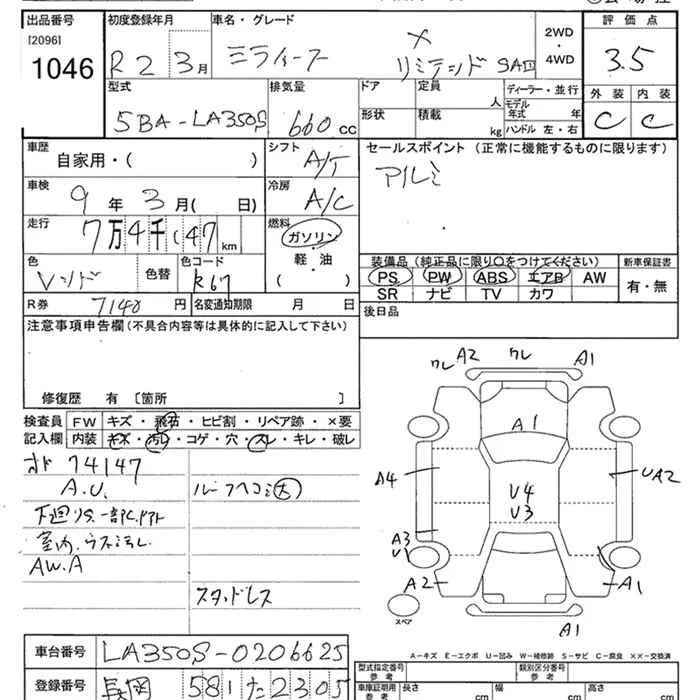 出品番号 初度登録年月 車名・グレード 2WD・4WD 評価点
[2096]
1046 R2 3月 ミライース X リミテッド SAⅢ 3.5
型式 排気量 ドア 定員 人 ディーラー・並行 外装 内装
5BA-LA350S 660cc 形状 積載 kg モデル年式 年 ハンドル 左・右 C C
車歴 シフト セールスポイント (正常に機能するものに限ります)
自家用・( ) A/T アルミ
車検 9年 3月( 日) 冷房 A/C
走行 7万4千147km 燃料 ガソリン 軽・油 ( )
装備品 (純正品に限り○をつけてください) 新車保証書
PS PW ABS エアB AW 有・無
SR ナビ TV カワ
色 色替 色コード
R67
R券 7140円 名変通知期限 月 日 後日品
注意事項申告欄(不具合内容等は具体的に記入して下さい)
修復歴 有 [箇所 ]
検査員記入欄 FW キズ・飛石・ヒビ割・リペア跡・×要
内装 キズ・汚レ・コゲ・穴・スレ・キレ・破レ
74147
A.U.
ルーフヘコミ大
下廻りサ.一部C.
室内.ウス汚レ
AW.A
スタッドレス
ワレ A2 ワレ A1
A1
A4 U4 U3 UA2
A3 U1
A2 A1
スペア
A1
A-キズ E-エクボ U-凹み W-補修跡 S-サビ C-腐食 XX-交換済
車台番号 LA350S-0206625
登録番号 長岡 581 た 2305
型式指定番号 参考 類別区分番号 参考
車庫証明用 参考 長さ cm 幅 cm 高さ cm